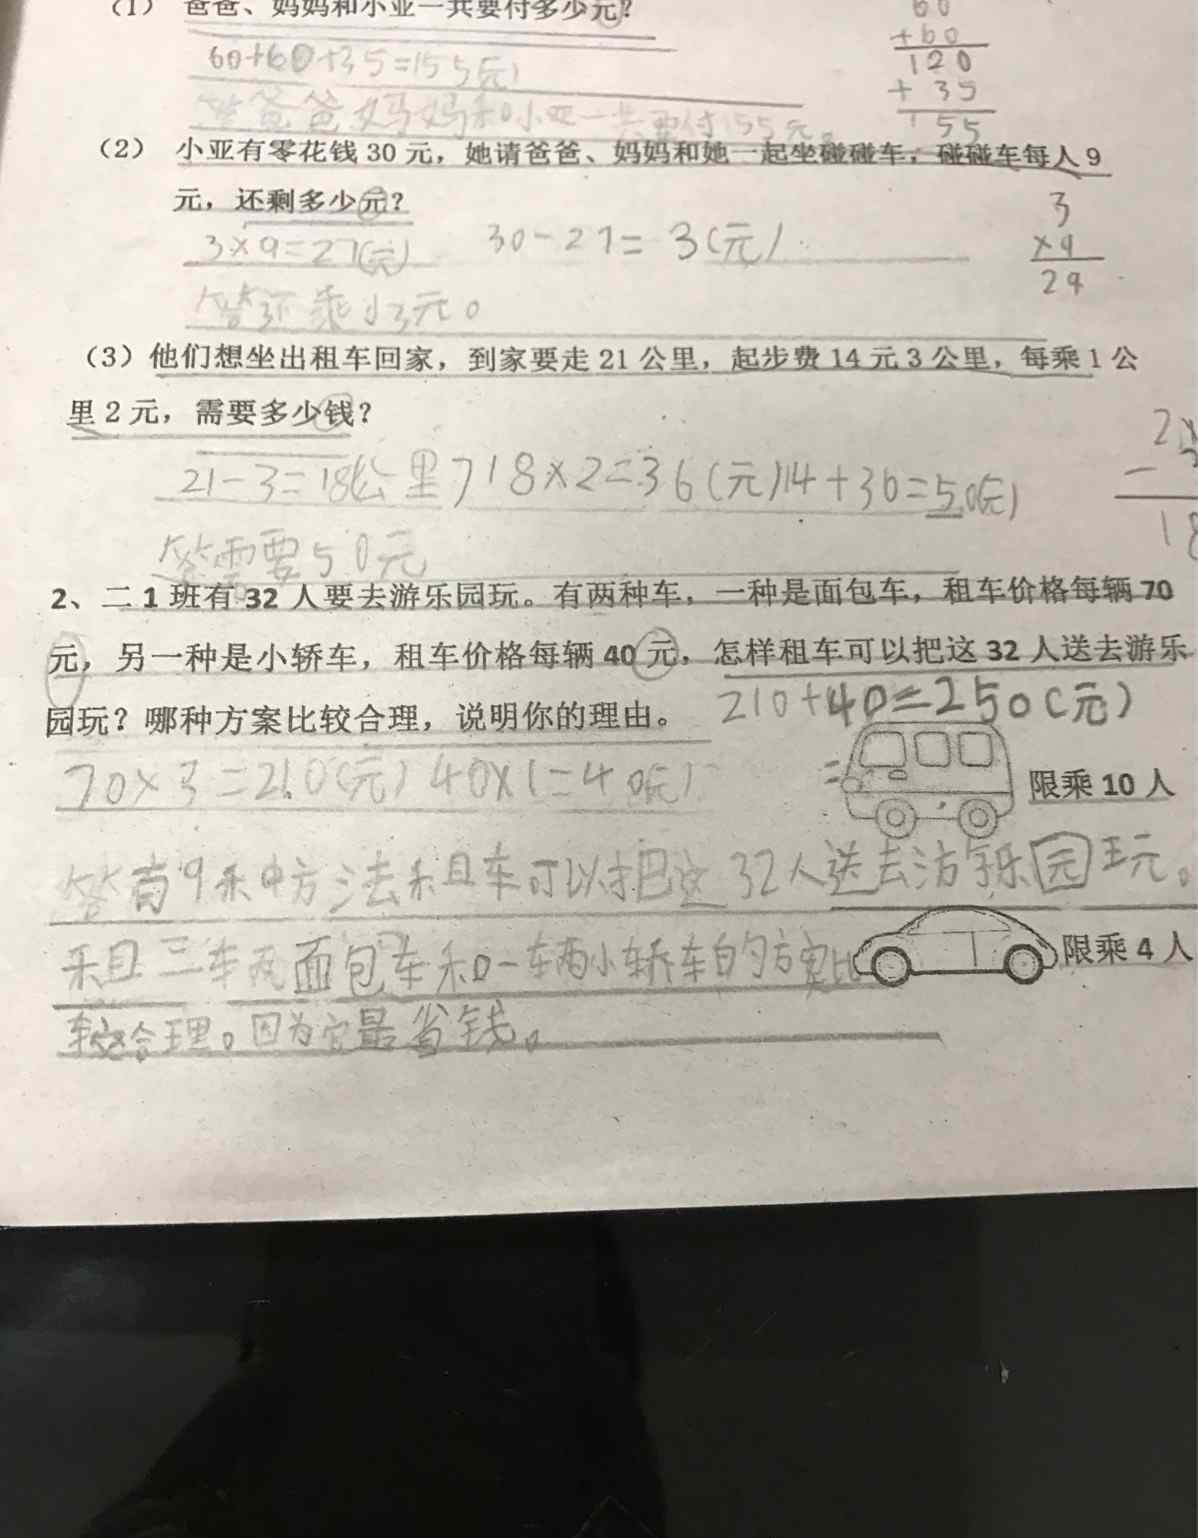 （1） 爸爸、妈妈和小亚一共要付多少元？
60
+60
120
+ 35
155
60+60+35=155(元)
答爸爸妈妈和小亚一共要付155元。
（2） 小亚有零花钱 30 元，她请爸爸、妈妈和她一起坐碰碰车，碰碰车每人 9
元，还剩多少元？
3×9=27(元) 30-27= 3(元)
3
×9
29
答还乘小3元。
（3）他们想坐出租车回家，到家要走 21 公里，起步费 14 元 3 公里，每乘 1 公
里 2 元，需要多少钱？
21-3=18(公里) 18×2=36(元) 14+36=50(元)
18
答需要50元
2、二 1 班有 32 人要去游乐园玩。有两种车，一种是面包车，租车价格每辆 70
元，另一种是小轿车，租车价格每辆 40 元，怎样租车可以把这 32 人送去游乐
园玩？哪种方案比较合理，说明你的理由。
210+40=250(元)
70×3=210(元) 40×1=40(元)
限乘 10 人
答有9种方法租车可以把这32人送去游乐园玩。
租三车两面包车和一车两小轿车的方案比
限乘 4 人
较合理。因为它最省钱。